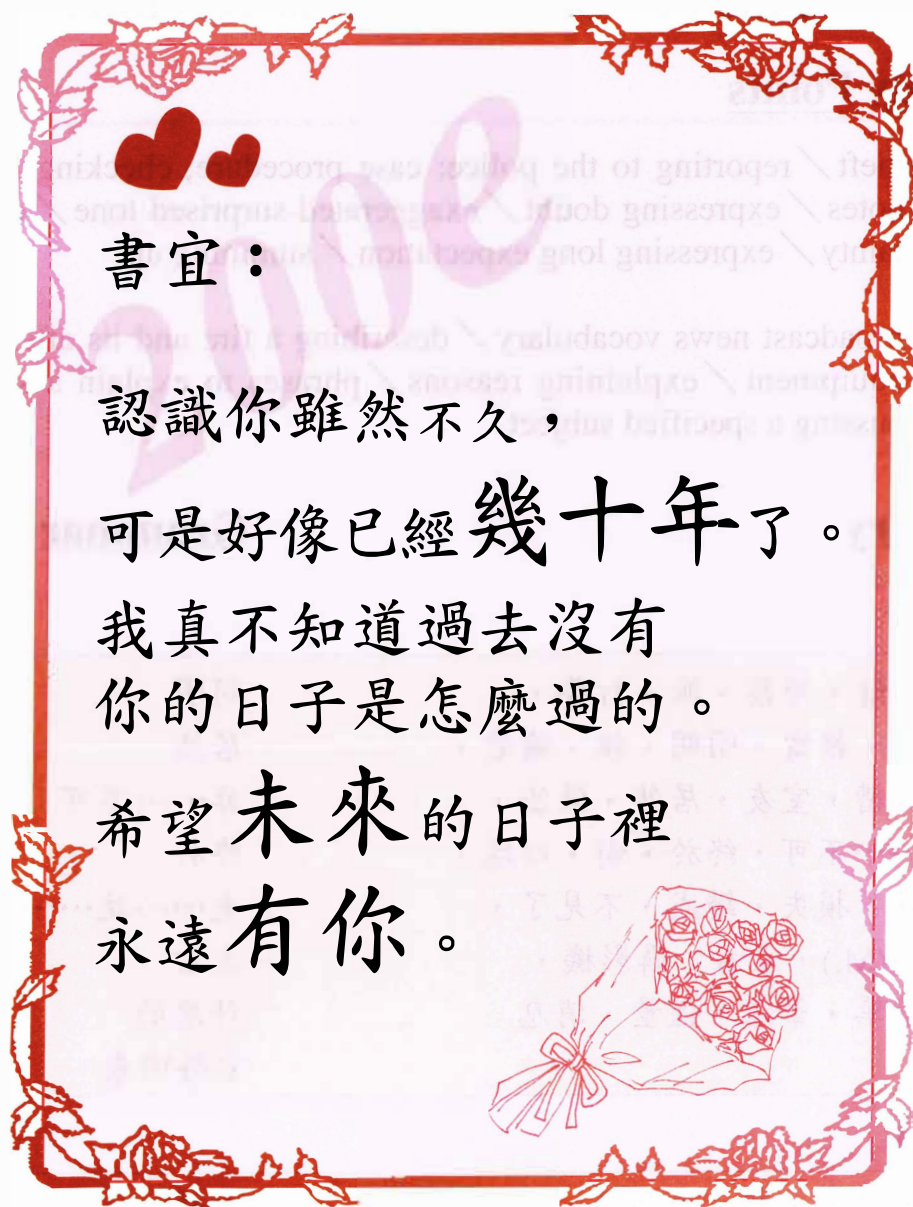 書宜：
認識你雖然不久，
可是好像已經幾十年了。
我真不知道過去沒有
你的日子是怎麼過的。
希望未來的日子裡
永遠有你。